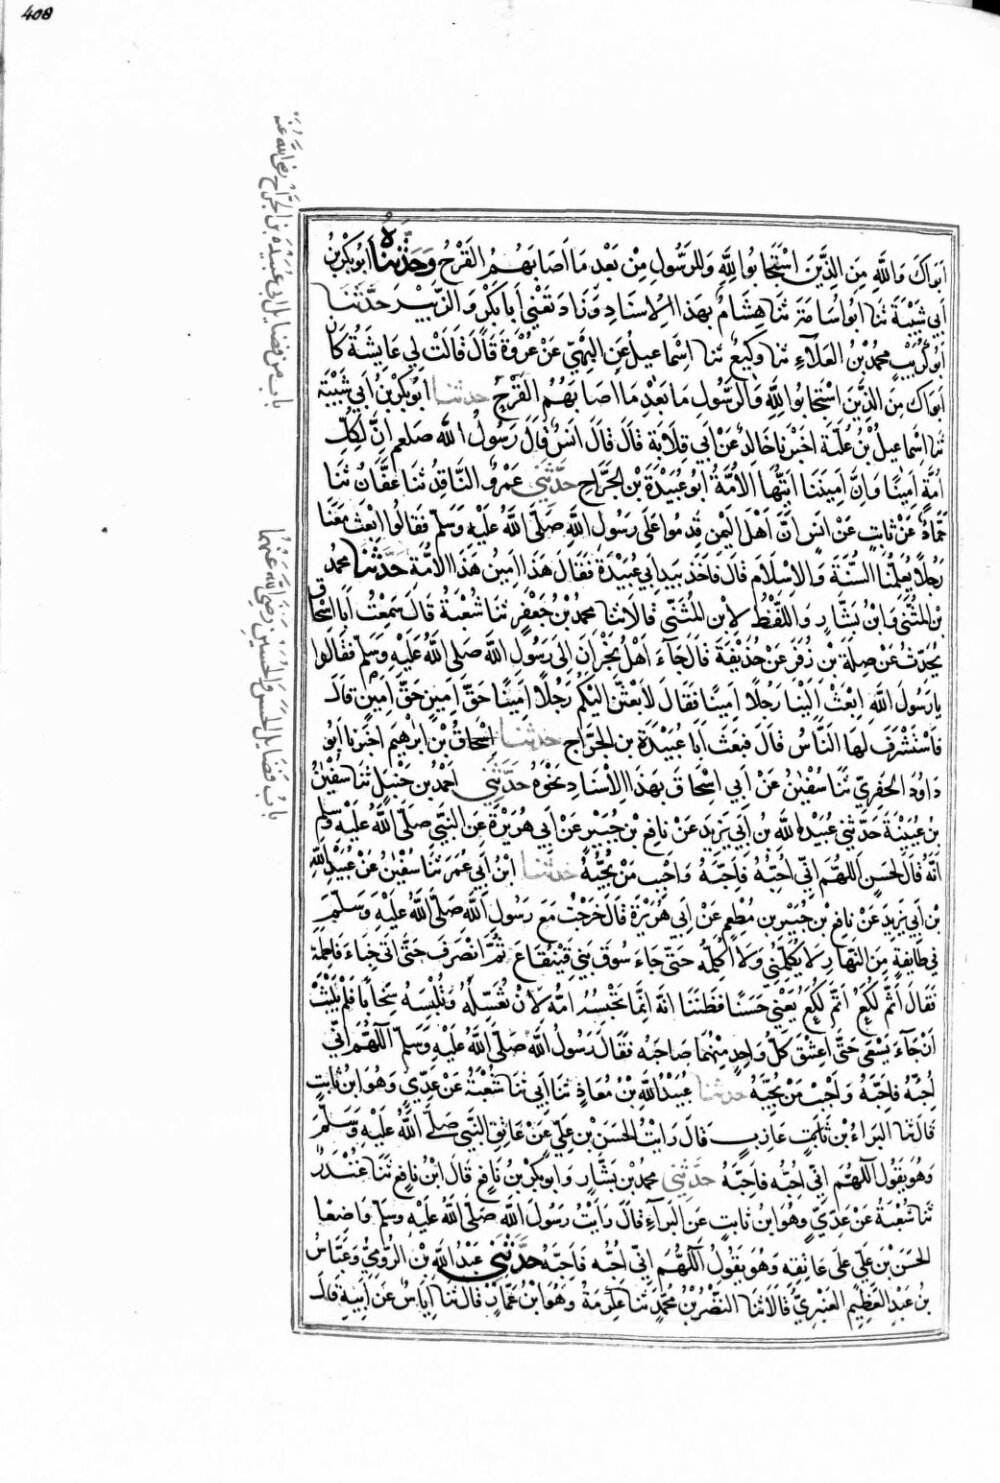 408
باب من فضايل ابى عبيدة بن الجراح رضى الله عنه
ابواك والله من الذين استجابوا لله وللرسول من بعد ما اصابهم القرح وحدثناه ابو بكر بن
ابي شيبة ثنا ابو اسامة ثنا هشام بهذا الاسناد وزاد تعني ابا بكر والزبير حدثنا
ابو كريب محمد بن العلاء ثنا وكيع ثنا اسماعيل عن البهي عن عروة قال قالت لي عايشة كان
ابواك من الذين استجابوا لله والرسول ما بعد ما اصابهم القرح حدثنا ابو بكر بن ابي شيبة
ثنا اسماعيل بن علية اخبرنا خالد عن ابي قلابة قال قال انس قال رسول الله صلعم ان لكل
امة امينا وان اميننا ايتها الامة ابو عبيدة بن الجراح حدثني عمرو الناقد ثنا عفان ثنا
حماد عن ثابت عن انس ان اهل اليمن قدموا على رسول الله صلى الله عليه وسلم فقالوا ابعث معنا
رجلا يعلمنا السنة والاسلام قال فاخذ بيد ابي عبيدة فقال هذا امين هذا الامة حدثنا محمد
بن المثنى وابن بشار واللفظ لابن المثنى قالا ثنا محمد بن جعفر ثنا شعبة قال سمعت ابا اسحاق
يحدث عن صلة بن زفر عن حذيفة قال جاء اهل نجران الى رسول الله صلى الله عليه وسلم فقالوا
يا رسول الله ابعث الينا رجلا امينا فقال لابعثن اليكم رجلا امينا حق امين حق امين قال
فاستشرف لها الناس قال فبعث ابا عبيدة بن الجراح حدثنا اسحاق بن ابرهيم اخبرنا ابو
داود الحفري ثنا سفين عن ابي اسحاق بهذا الاسناد نحوه حدثني احمد بن حنبل ثنا سفين
باب فضايل الحسن والحسين رضى الله عنهما
بن عيينة حدثني عبيد الله بن ابي يزيد عن نافع بن جبير عن ابي هريرة عن النبي صلى الله عليه وسلم
انه قال لحسن اللهم اني احبه فاحبه واحبب من يحبه حدثنا ابن ابي عمر ثنا سفين عن عبيد الله
بن ابي يزيد عن نافع بن جبير بن مطعم عن ابي هريرة قال خرجت مع رسول الله صلى الله عليه وسلم
في طايفة من النهار لا يكلمني ولا اكلمه حتى جاء سوق بني قينقاع ثم انصرف حتى اتى خباء فاطمة
فقال اثم لكع اثم لكع يعني حسنا فظننا انه انما تحبسه امه لان تغسله وتلبسه سخابا فلم يلبث
ان جاء يسعى حتى اعتنق كل واحد منهما صاحبه فقال رسول الله صلى الله عليه وسلم اللهم اني
احبه فاحبه واحبب من يحبه حدثنا عبيد الله بن معاذ ثنا ابي ثنا شعبة عن عدي وهو ابن ثابت
قال ثنا البراء بن عازب قال رايت الحسن بن علي عن عاتق النبي صلى الله عليه وسلم
وهو يقول اللهم اني احبه فاحبه حدثني محمد بن بشار وابو بكر بن نافع قال ابن نافع ثنا غندر
ثنا شعبة عن عدي وهو ابن ثابت عن البراء قال رايت رسول الله صلى الله عليه وسلم واضعا
الحسن بن علي على عاتقه وهو يقول اللهم اني احبه فاحبه حدثني عبد الله بن الرومي وعباس
بن عبد العظيم العنبري قالا ثنا النضر بن محمد ثنا عكرمة وهو ابن عمار قال ثنا اياس عن ابيه قال